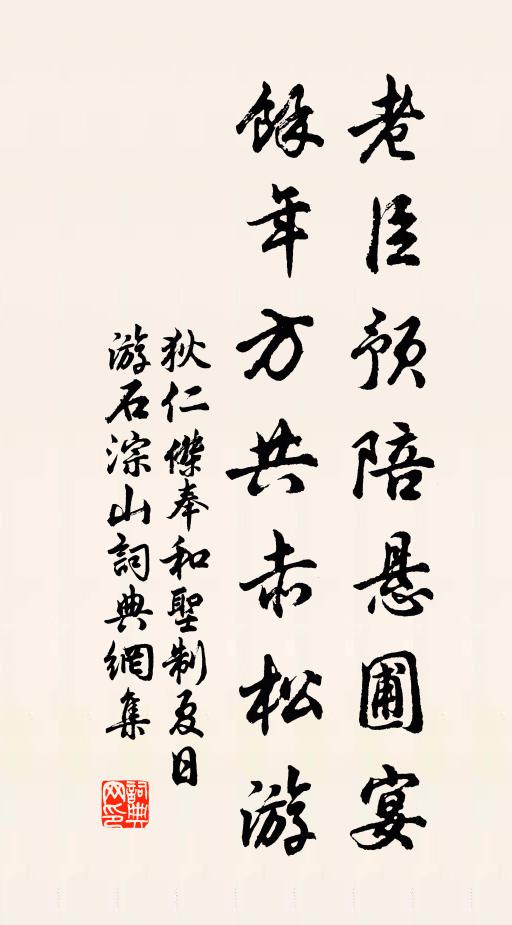 老臣預陪悬圃宴
餘年方共赤松游
狄仁傑奉和聖制夏日
游石淙山詞典網集
詞典
网印